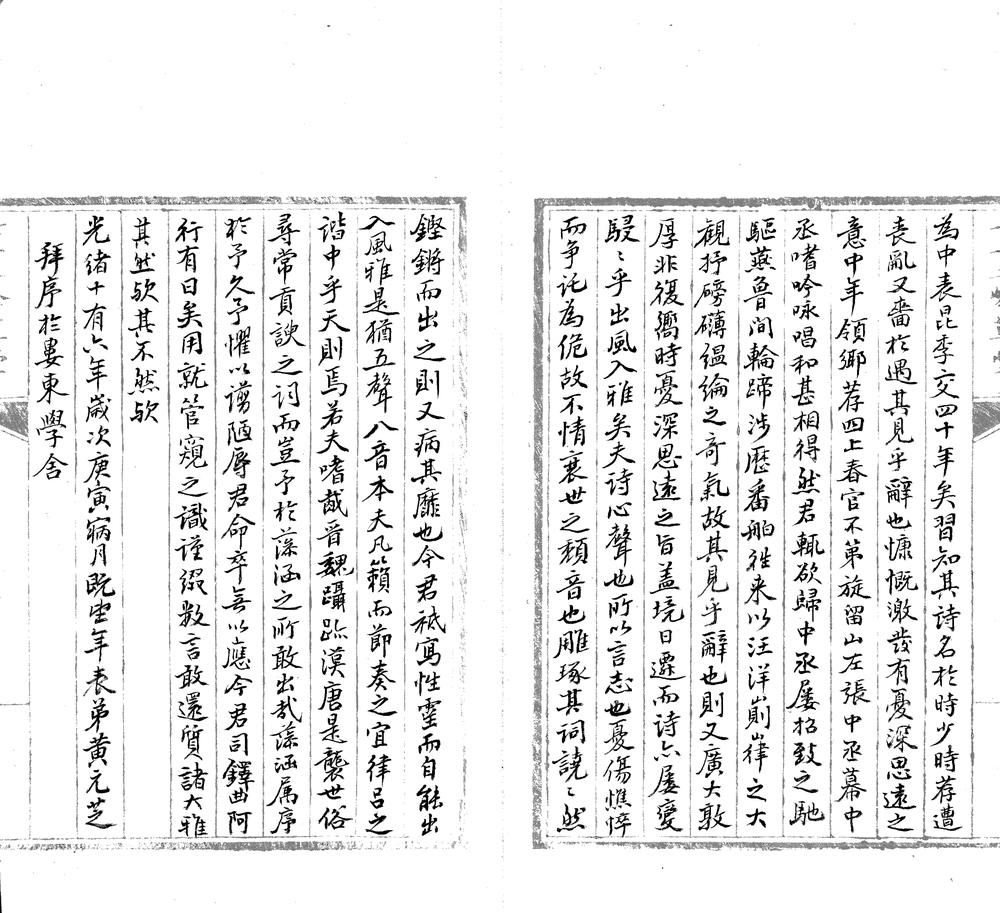 為中表昆季交四十年矣習知其詩名於時少時荐遭
喪亂又嗇於遇其見乎辭也慷慨激發有憂深思遠之
意中年領鄉荐四上春官不第旋留山左張中丞幕中
丞嗜吟咏唱和甚相得然君輒欲歸中丞屢招致之馳
驅燕魯間輪蹄涉歷番舶往来以汪洋崱嵂之大
觀抒磅礴縕綸之奇氣故其見乎辭也則又廣大敦
厚非復嚮時憂深思遠之旨蓋境日遷而詩亦屢變
駸〻乎出風入雅矣夫詩心聲也所以言志也憂傷憔悴
而争託為佹故不情衰世之頹音也雕琢其詞譊〻然
鏗鏘而出之則又病其靡也今君祗寫性靈而自能出
入風雅是猶五聲八音本夫凡籟而節奏之宜律呂之
諧中乎天則焉若夫嗜胾晋魏躡跡漢唐是襲世俗
尋常貢諛之詞而豈予於藻涵之所敢出哉藻涵属序
於予久予懼以謭陋辱君命卒無以應今君司鐸曲阿
行有日矣用就管窺之識謹綴数言敢還質諸大雅
其然欤其不然欤
光緒十有六年歲次庚寅寎月既望年表弟黄元芝
拜序於婁東學舍